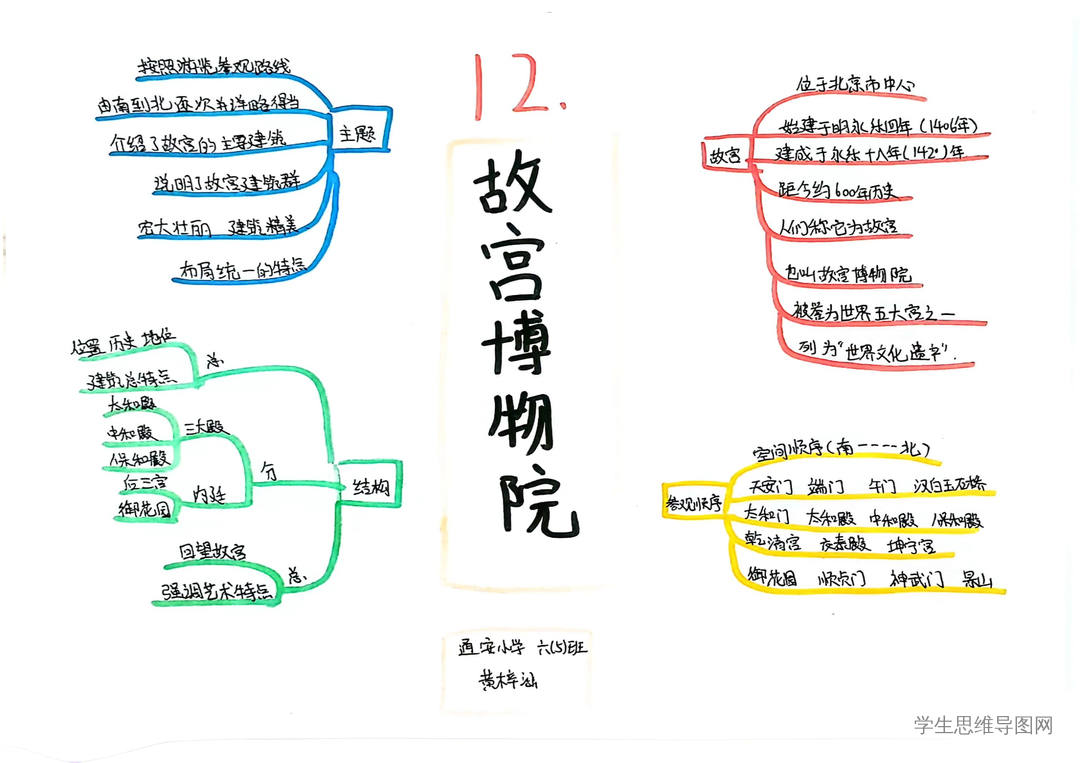 12.
故宫博物院
通安小学 六(5)班
黄梓涵
主题
按照游览参观路线
由南到北逐次书详略得当
介绍了故宫的主要建筑
说明了故宫建筑群
宏大壮丽 建筑精美
布局统一的特点
结构
总
位置 历史 地位
建筑总特点
分
三大殿
太和殿
中和殿
保和殿
内廷
后三宫
御花园
总
回望故宫
强调艺术特点
故宫
位于北京市中心
始建于明永乐四年(1406年)
建成于永乐十八年(1420)年
距今约600年历史
人们称它为故宫
也叫故宫博物院
被誉为世界五大宫之一
列为"世界文化遗产".
参观顺序
空间顺序(南----北)
天安门 端门 午门 汉白玉石桥
太和门 太和殿 中和殿 保和殿
乾清宫 交泰殿 坤宁宫
御花园 顺贞门 神武门 景山
学生思维导图网